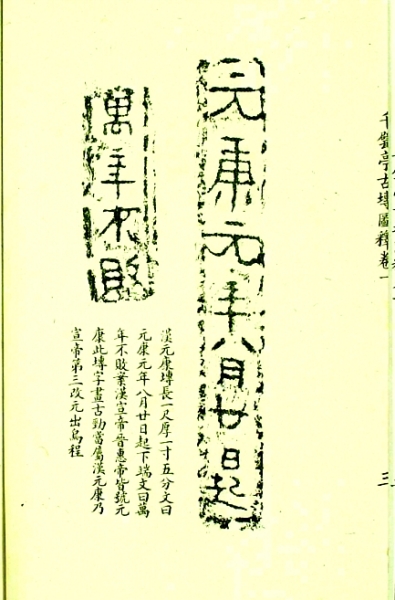 千甓亭古塼圖釋卷一
三
元康元年八月廿日起
萬年不敗
漢元康塼長一尺厚一寸五分文曰
元康元年八月廿日起下端文曰萬
年不敗案漢宣帝晉惠帝皆號元
康此塼字畫古勁當屬漢元康乃
宣帝第三改元出烏程